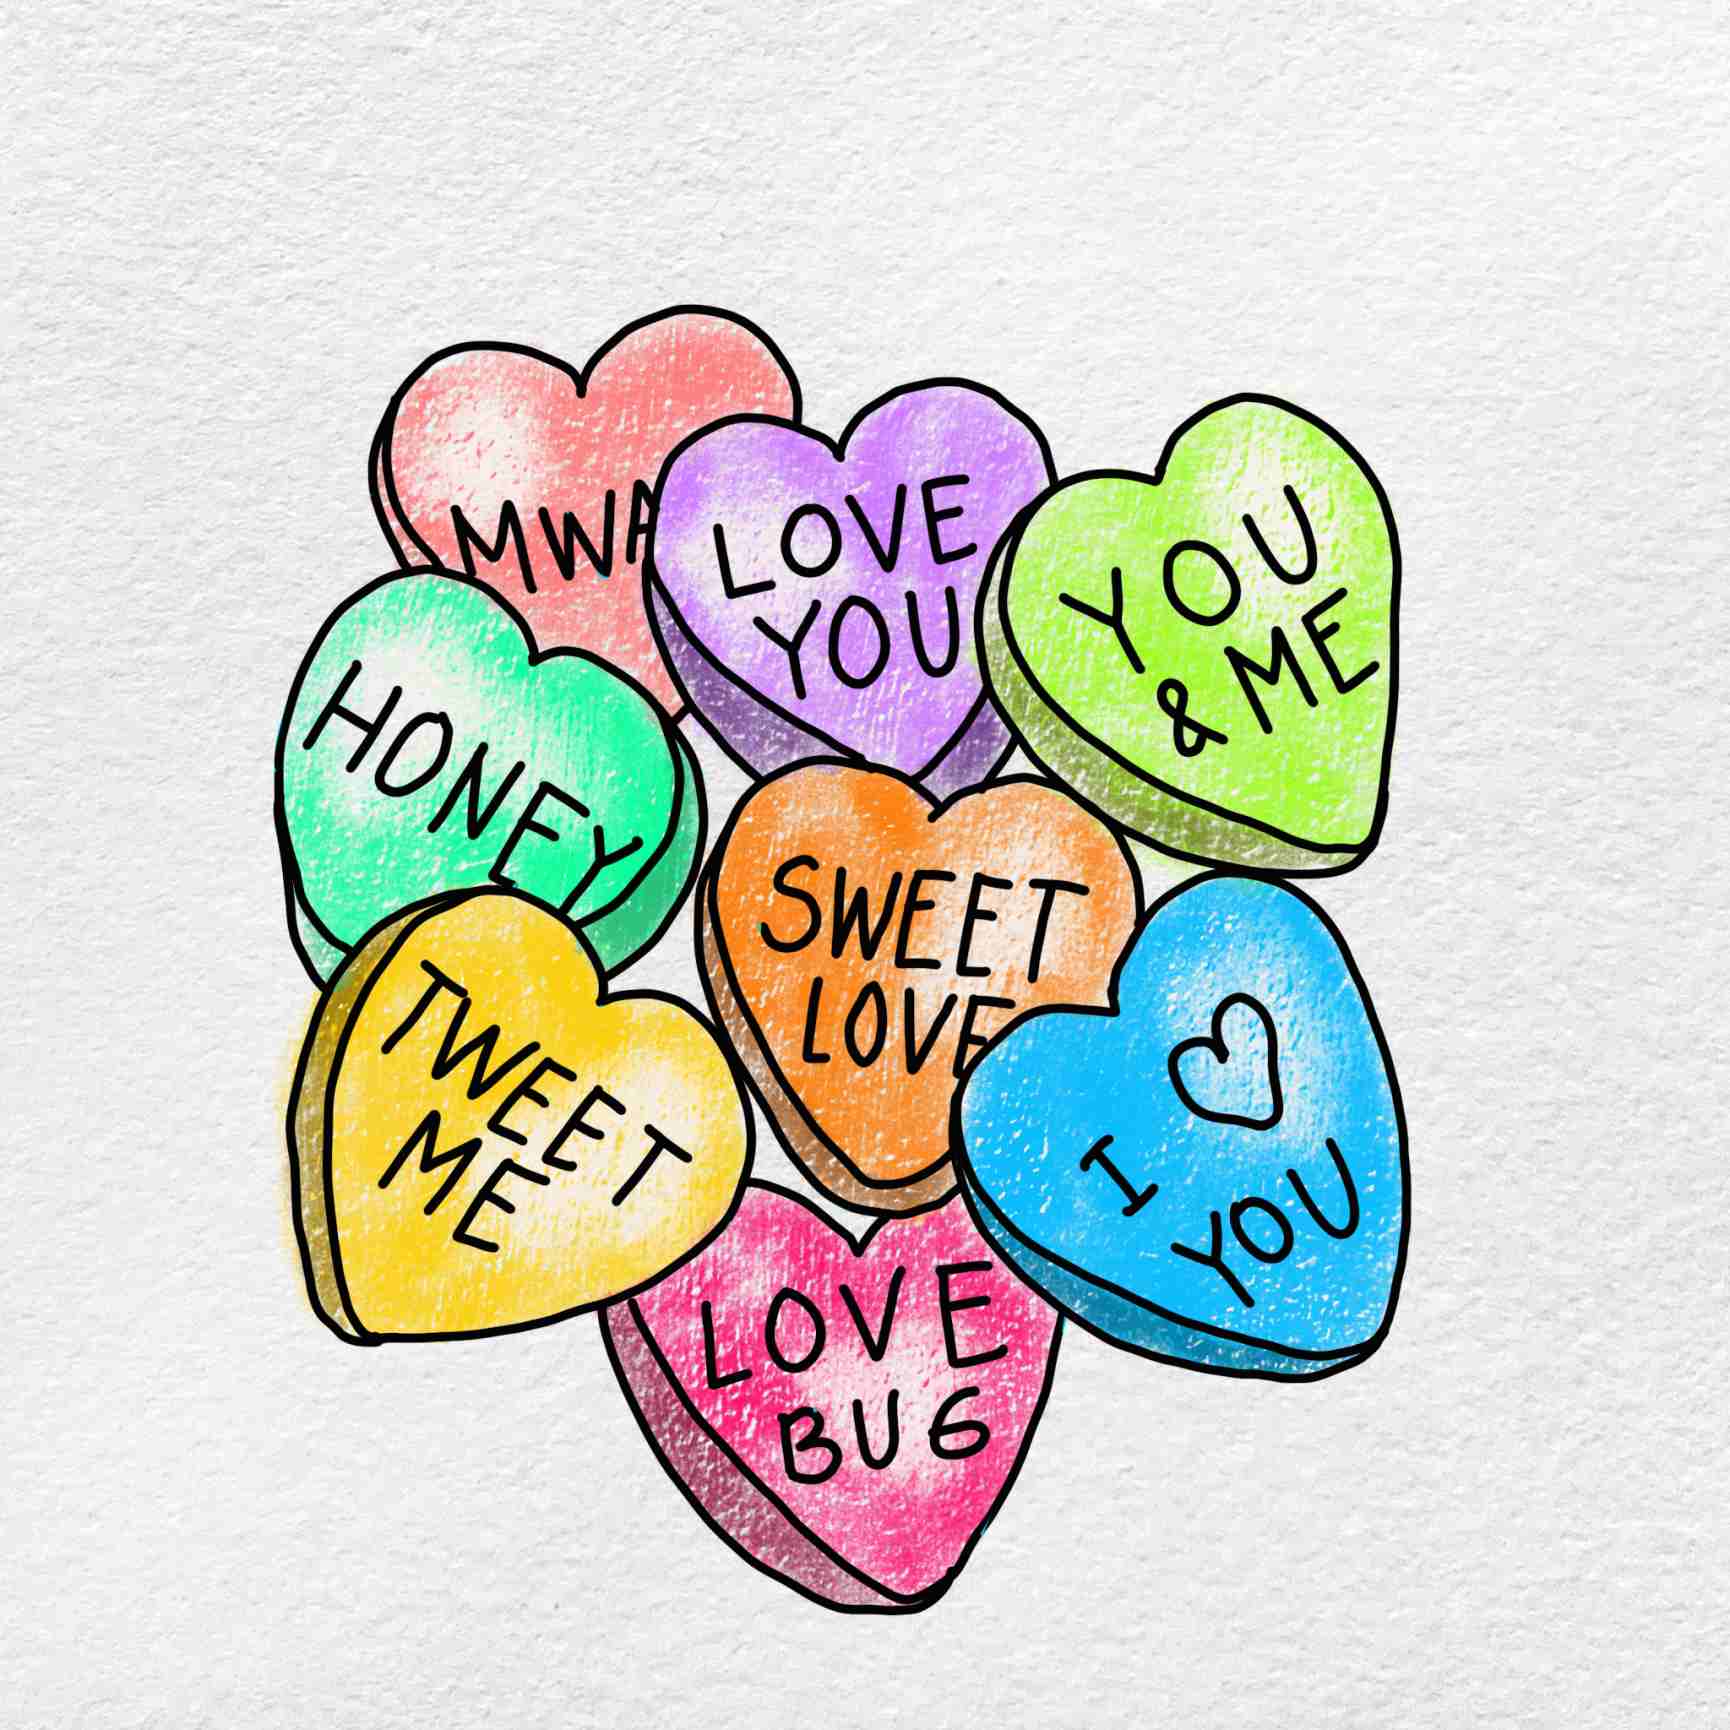 MWA
LOVE
YOU
YOU
& ME
HONEY
SWEET
LOVE
TWEET
ME
I ♡
YOU
LOVE
BUG